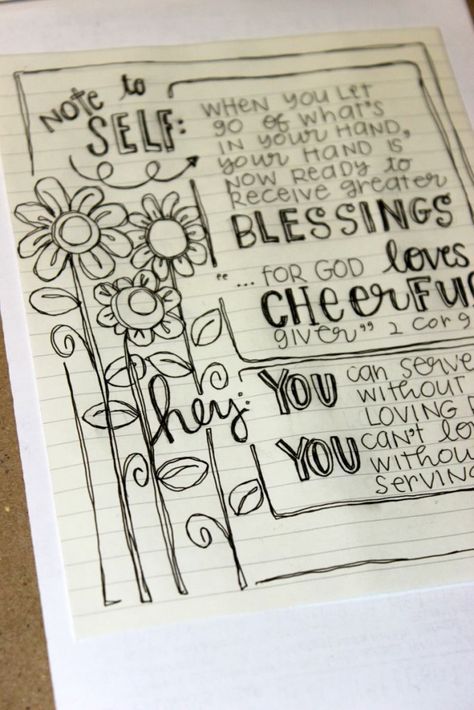 NOTE to
SELF:
WHEN YOU LET
GO OF WHAT'S
IN YOUR HAND,
YOUR HAND IS
NOW READY TO
RECEIVE GREATER
BLESSINGS
"...FOR GOD loves
CHEERFU
GIVER" 2 COR 9
hey:
YOU can SERVE
WITHOUT
LOVING
YOU CAN'T LO
WITHOU
SERVING